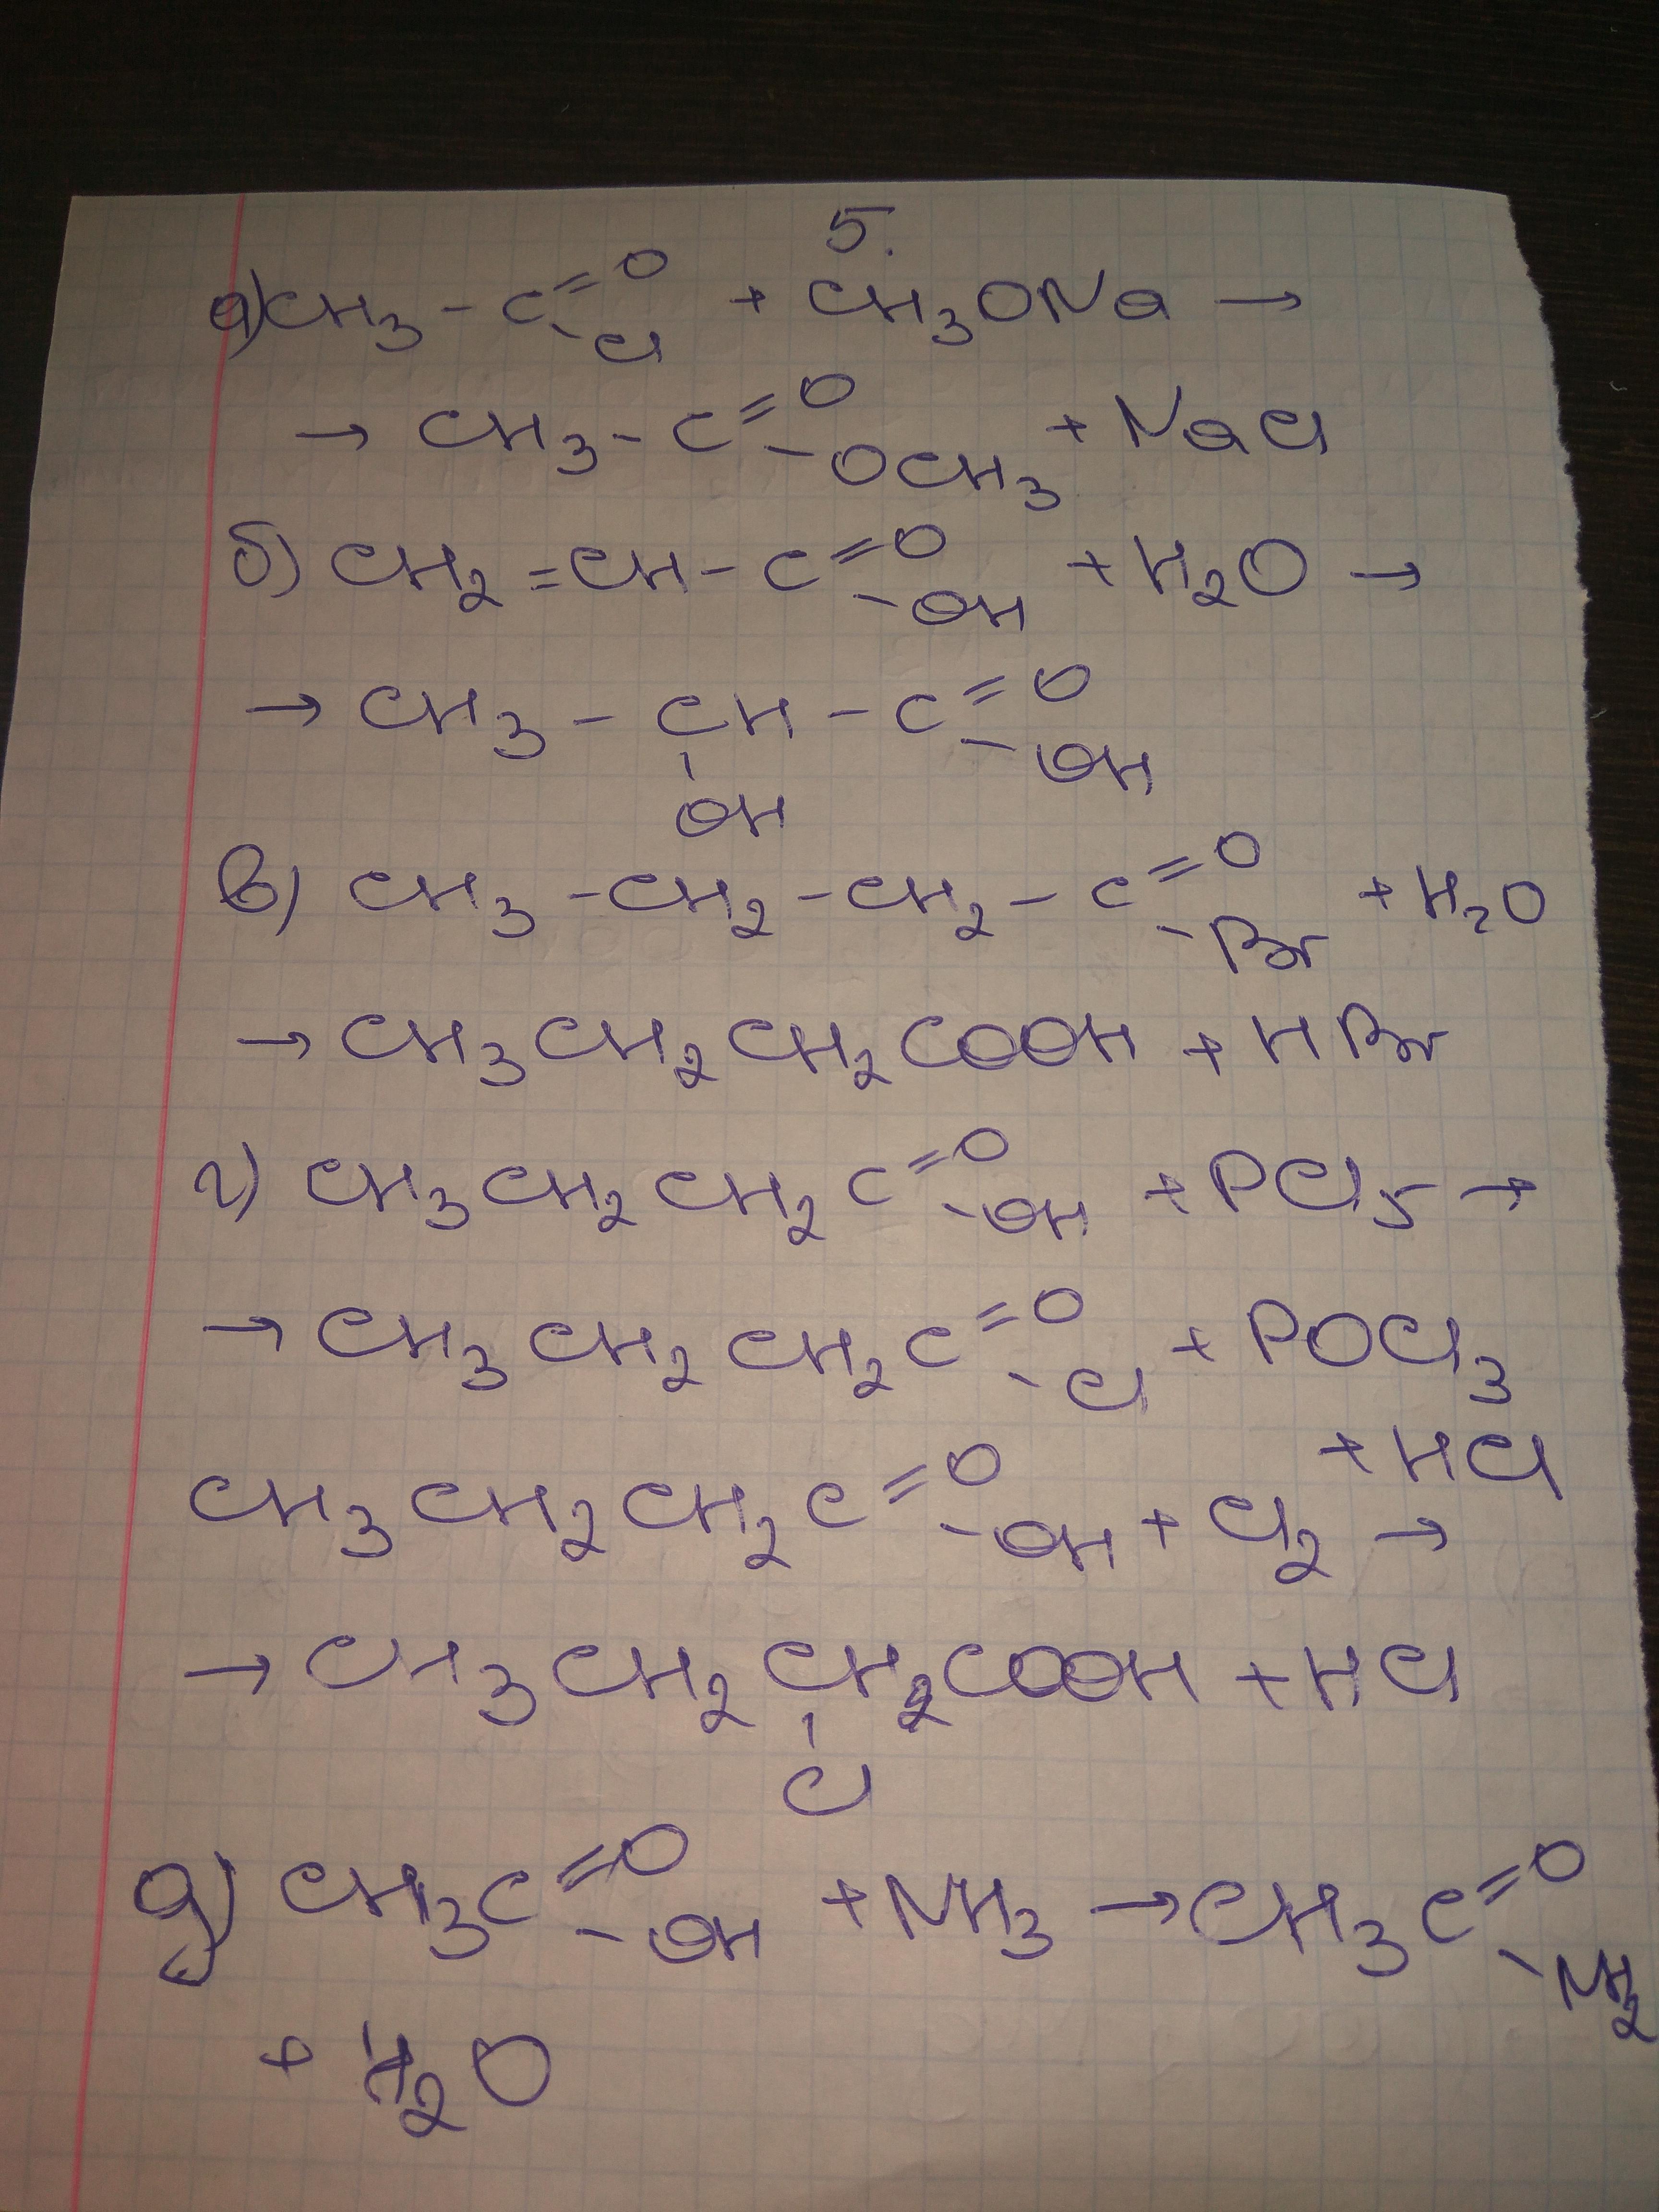 5.
а) CH3 - C=O -Cl + CH3ONa →
→ CH3 - C=O -OCH3 + NaCl
б) CH2 = CH - C=O -OH + H2O →
→ CH3 - CH - C=O -OH
OH
в) CH3 - CH2 - CH2 - C=O -Br + H2O
→ CH3CH2CH2COOH + HBr
г) CH3CH2CH2C=O -OH + PCl5 →
→ CH3CH2CH2C=O -Cl + POCl3
+ HCl
CH3CH2CH2C=O -OH + Cl2 →
→ CH3CH2CH2COOH + HCl
Cl
д) CH3C=O -OH + NH3 → CH3C=O -NH2
+ H2O